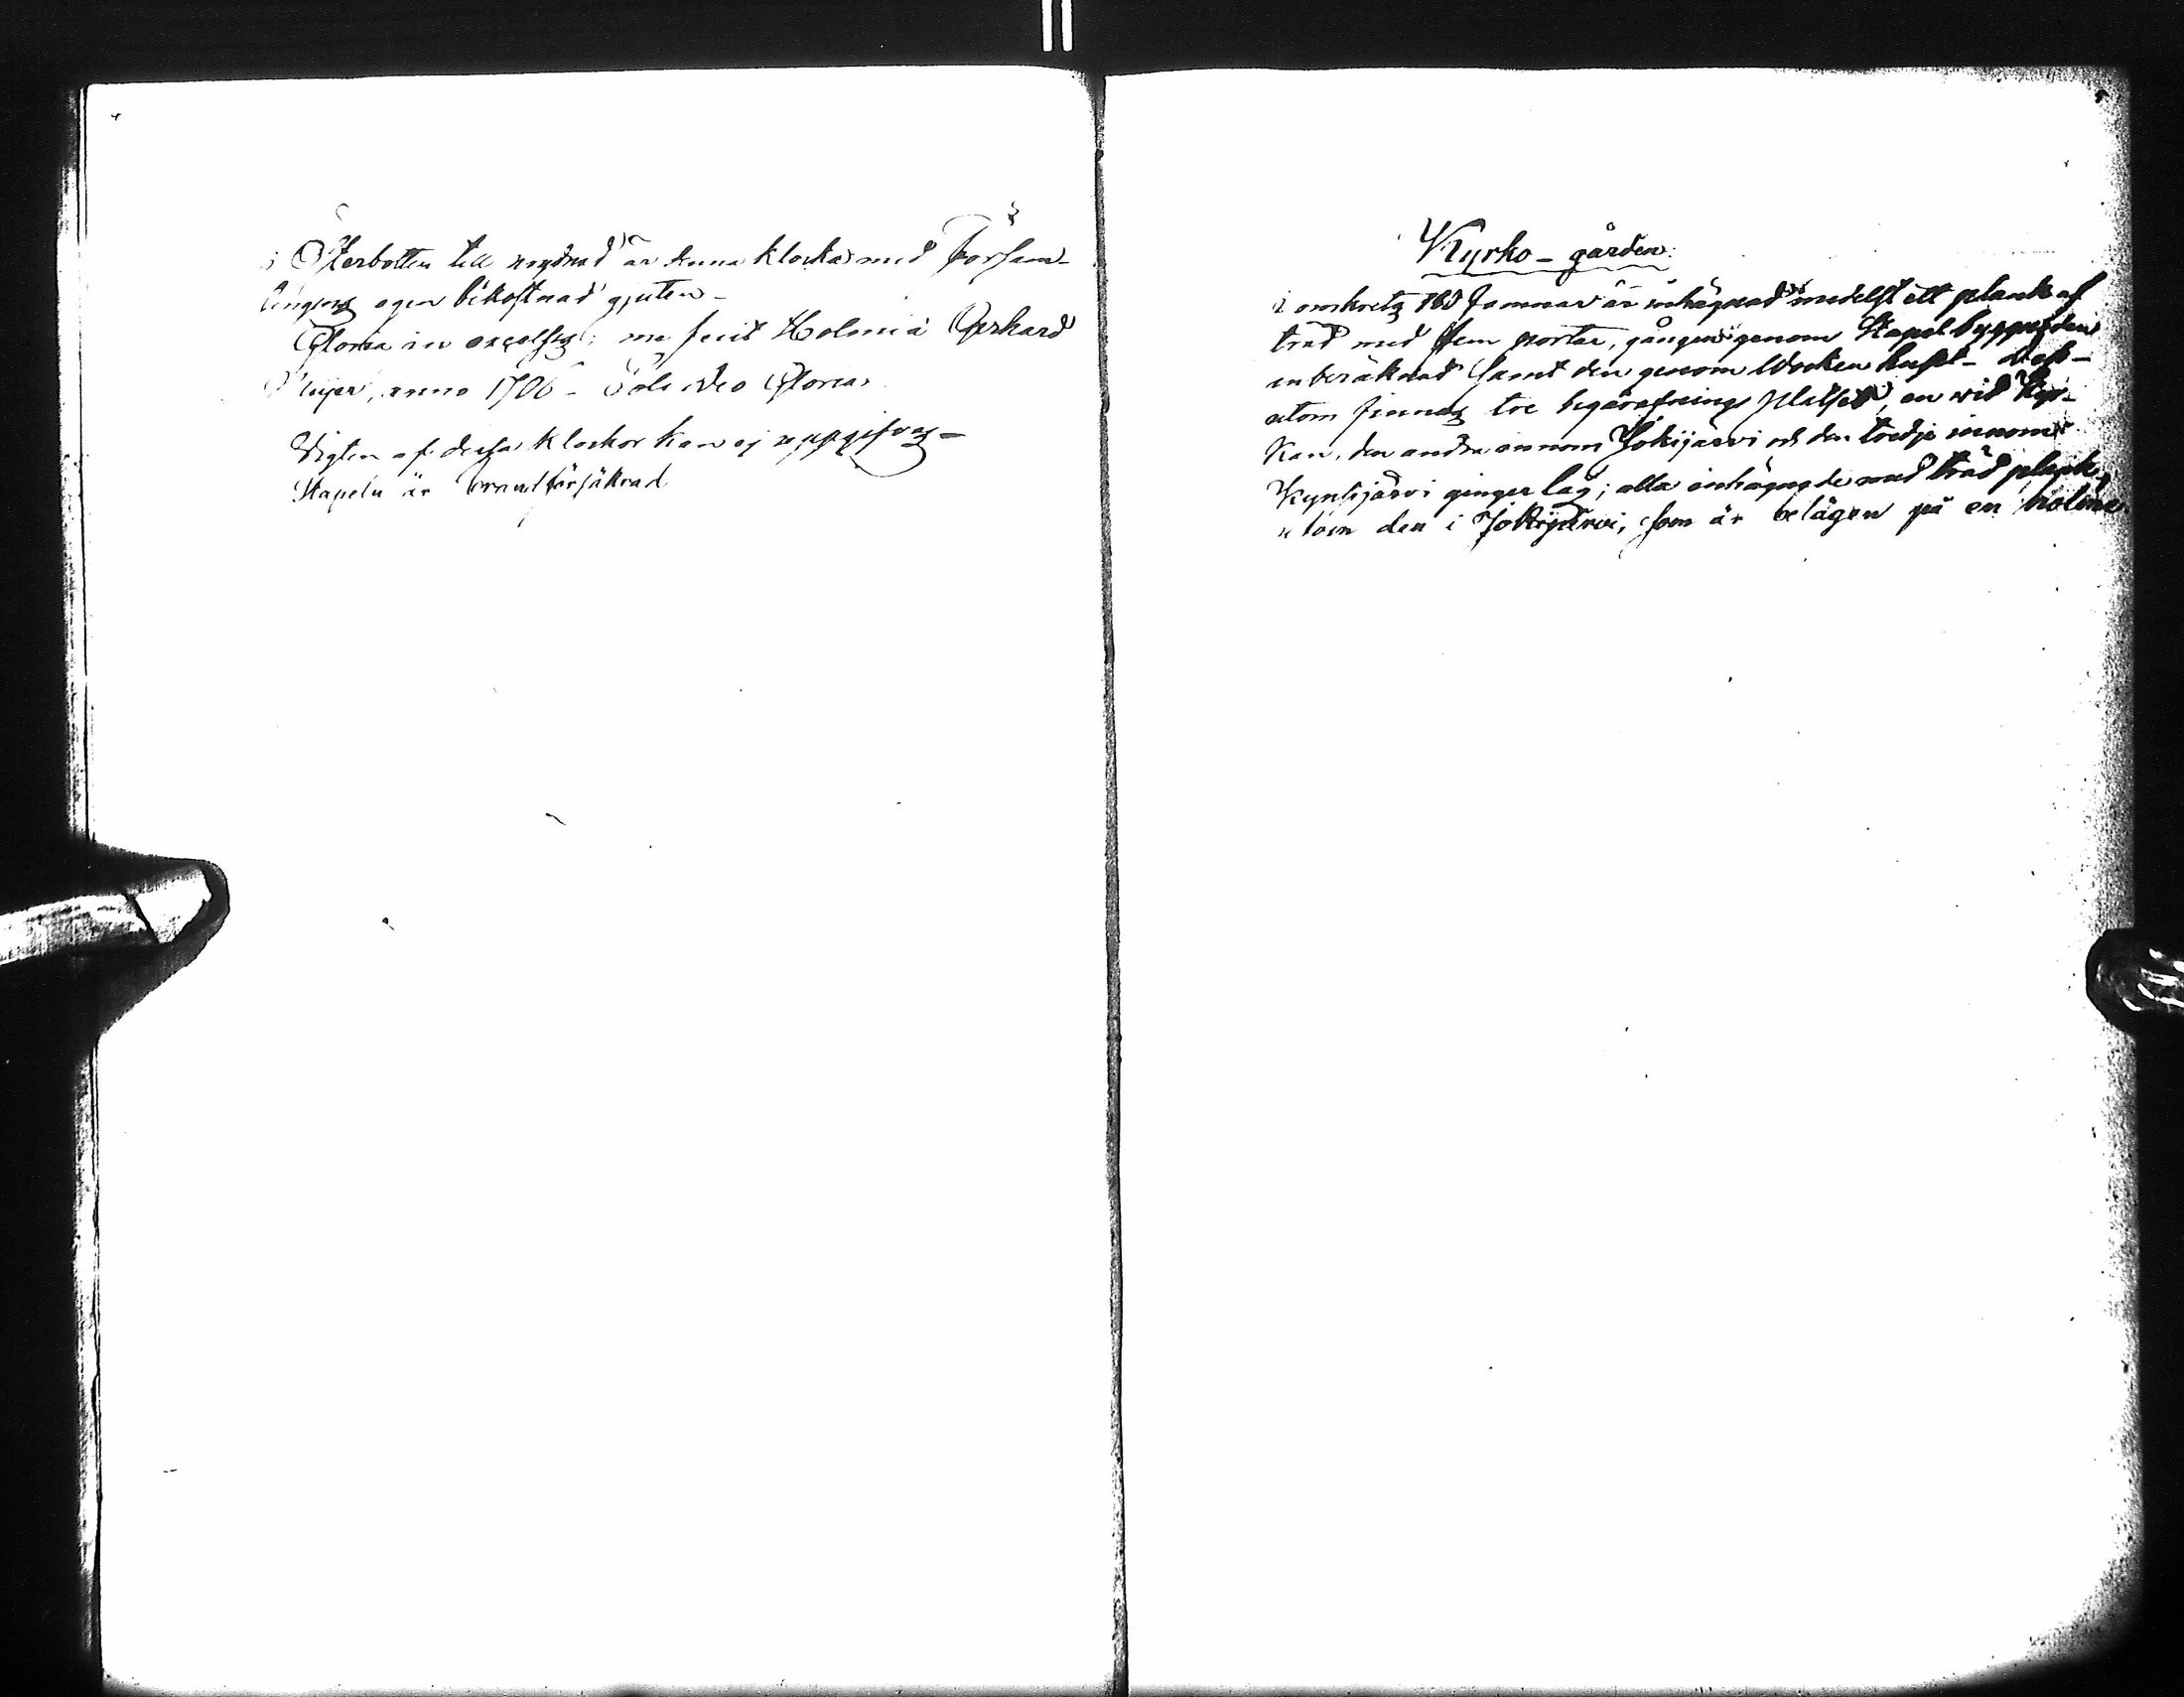 i Österbotten till prydnad är denna klocka med Försam-
lingens egen bekostnad gjuten –
Gloria in excelsis; me fecit Holmiæ Gerhard
Meijer, anno 1706 – Soli Deo Gloria.
Vigten af dessa klockor kan ej uppgifvas –
Stapeln är brandförsäkrad
Kyrko-gården:
i omkrets 160 famnar är inhägnad medelst ett plank af
träd med fem portar, gången genom Stapelbyggnaden
inberäknad samt den genom Wocken huset – dess-
utom finnas tre begrafnings platser, en vid Kyr-
kan, den andra innom Jokijärvi och den tredje innom
Kynsijärvi gingerlag; alla inhägnade med träd plank,
utom den i Jokijärvi, som är belägen på en holme